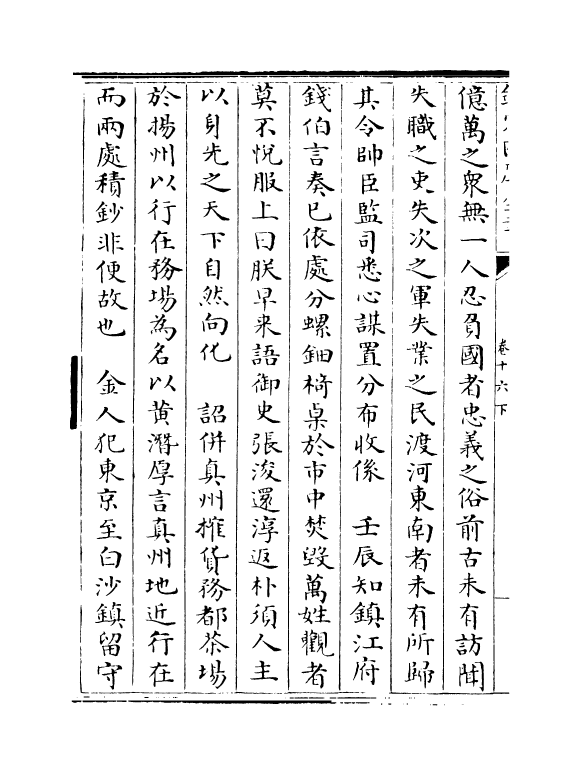 億萬之衆無一人忍負國者忠義之俗前古未有訪聞
失職之吏失次之軍失業之民渡河東南者未有所歸
其令帥臣監司悉心謀置分布收係　壬辰知鎮江府
錢伯言奏已依處分螺鈿椅桌於市中焚毀萬姓觀者
莫不悅服上曰朕早來語御史張浚還淳返朴須人主
以身先之天下自然向化　詔併真州榷貨務都茶場
於揚州以行在務場為名以黄潛厚言真州地近行在
而兩處積鈔非便故也　金人犯東京至白沙鎮留守
卷十六下